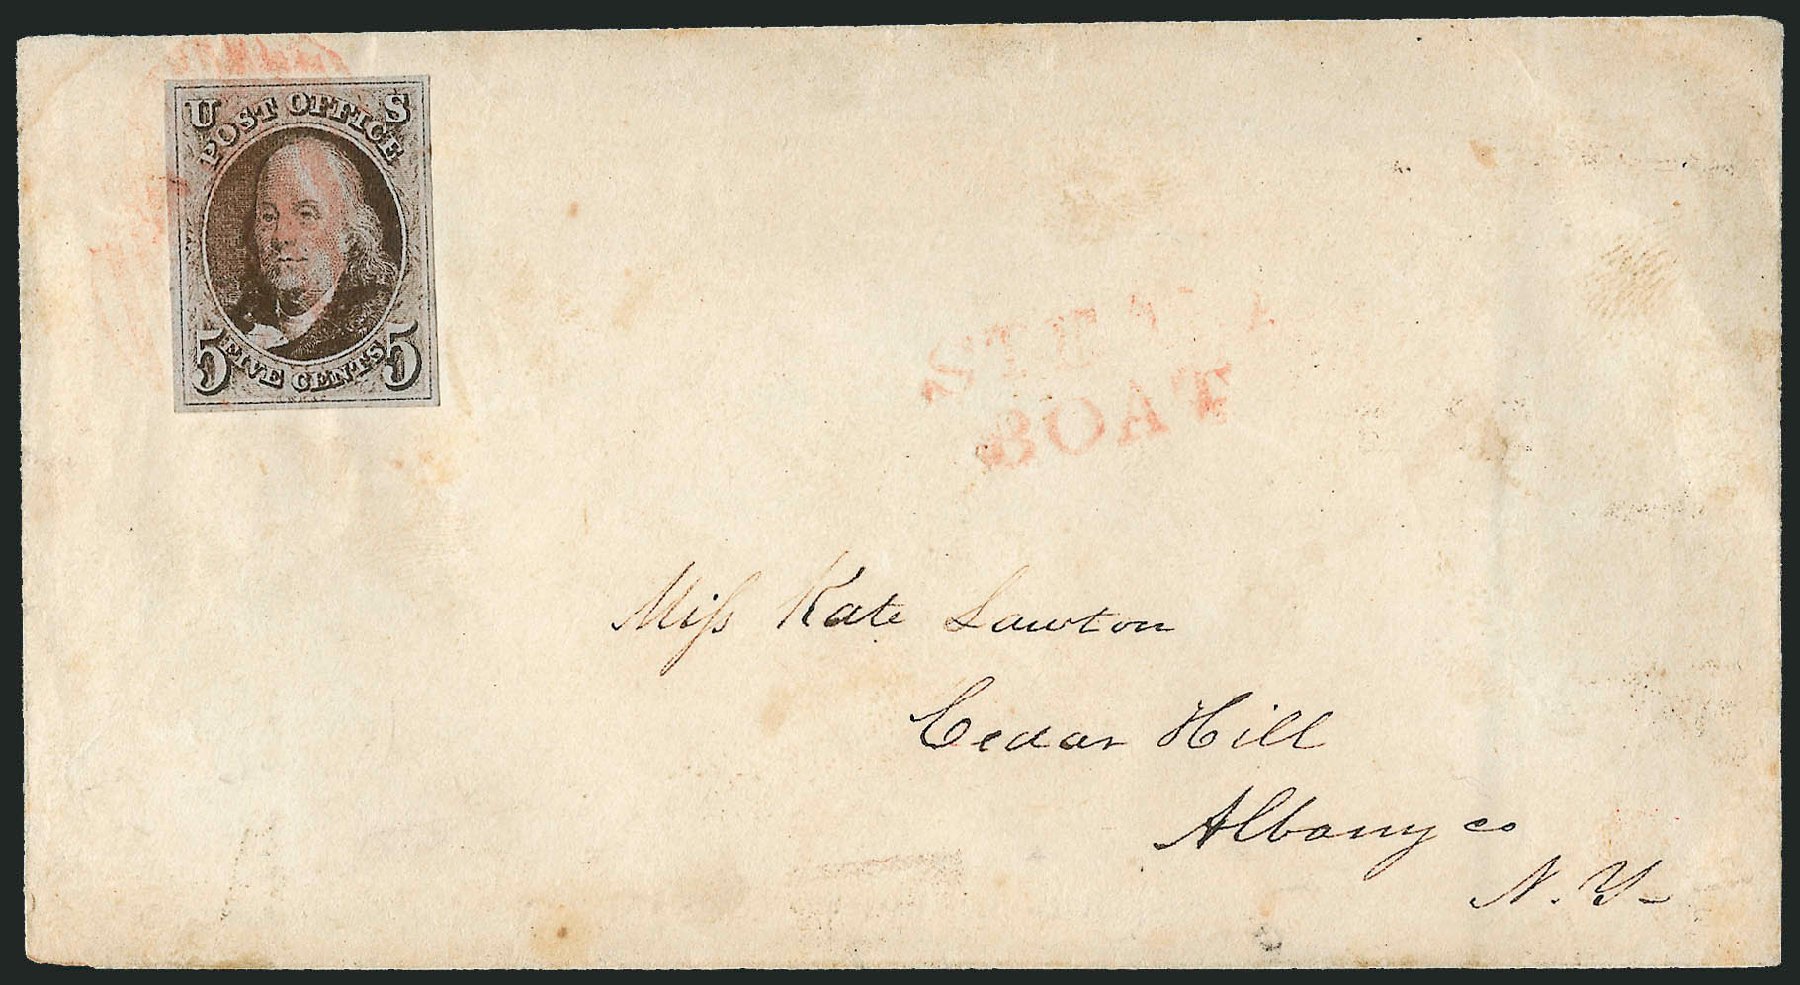 U S
POST OFFICE
5 FIVE CENTS 5
STEAM
BOAT
Miſs Kate Lawton
Cedar Hill
Albany co
N. Y-